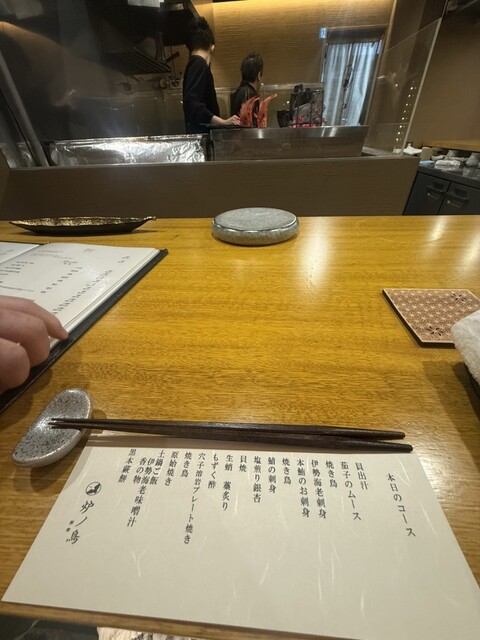 本日のコース
貝出汁
茄子のムース
焼き鳥
伊勢海老刺身
本鮪のお刺身
焼き鳥
鮹の刺身
塩煎り銀杏
貝焼
生蛸 藁炙り
もずく酢
穴子溶岩プレート焼き
焼き鳥
原始焼き
土鍋ご飯
伊勢海老味噌汁
香の物
黒本蕨餅
炉ノ鳥